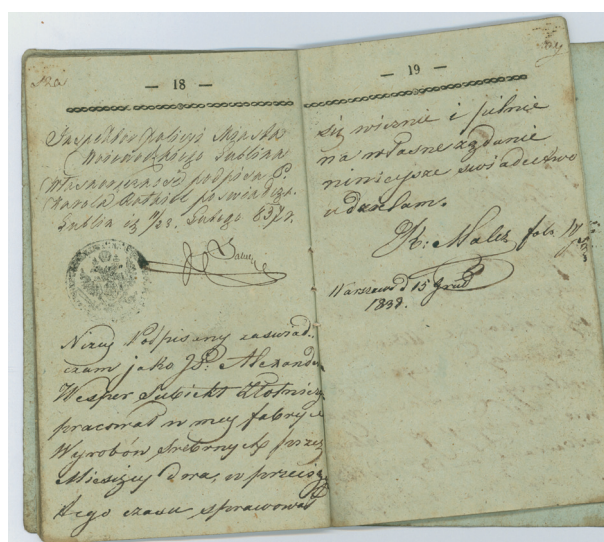 — 18 —
Inspektor Policyi Miasta
Wojewódzkiego Lublina
Własnoręczność podpisu P.
Karola poświadcza.
Lublin d. 11/23. Lutego 837 r.
Niżey Podpisany zaświad-
czam jako JP. Alexander
Wesper Subiekt Złotniczy
pracował w mey fabryce
Wyrobów srebrnych przez
Miesięcy dwa, w przeciągu
tego czasu sprawował
— 19 —
się wiernie i pilnie
na własne rządanie
ninieysze świadectwo
udzielam.
K: Malcz fab:
Warszawa d 15 Grud
1838.